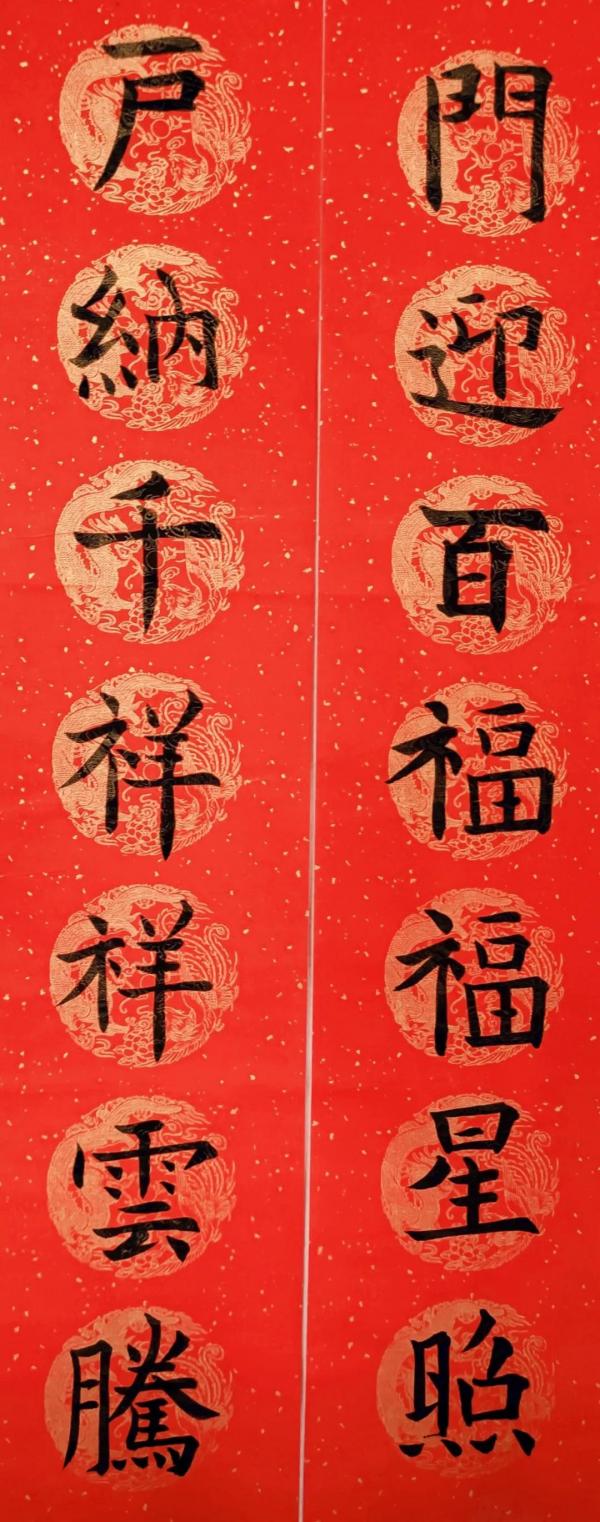 門迎百福福星照
戶納千祥祥雲騰